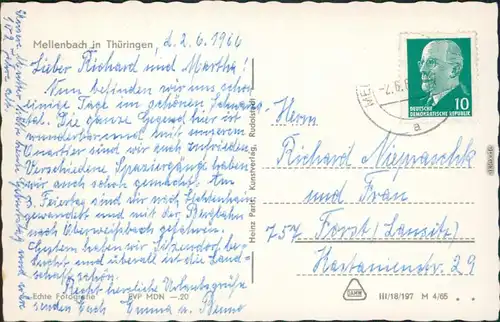 Mellenbach in Thüringen, d. 2.6.1966
Lieber Richard und Martha!
Nun befinden wir uns schon
einige Tage im schönen Schwarza-
tal. Die ganze Gegend hier ist
wunderbar und mit unserem
Quartier sind wir auch zufrieden.
Verschiedene Spaziergänge haben
wir auch schon gemacht. Am
3. Feiertag sind wir nach Lichtenhain
gewandert und mit der Bergbahn
nach Oberweißbach gefahren.
Gestern haben wir Sitzendorf be-
sucht und überall ist die Land-
schaft schön.
Recht herzliche Urlaubsgrüße
senden Euch Emma u. Benno
Echte Fotografie EVP MDN —.20
Heinz Paris, Kunstverlag, Rudolstadt
ME
-2.6.6
a
10
DEUTSCHE
DEMOKRATISCHE REPUBLIK
Herrn
Richard Niepraschk
und Frau
757 Forst (Lausitz)
Kastanienstr. 29
III/18/197 M 4/65